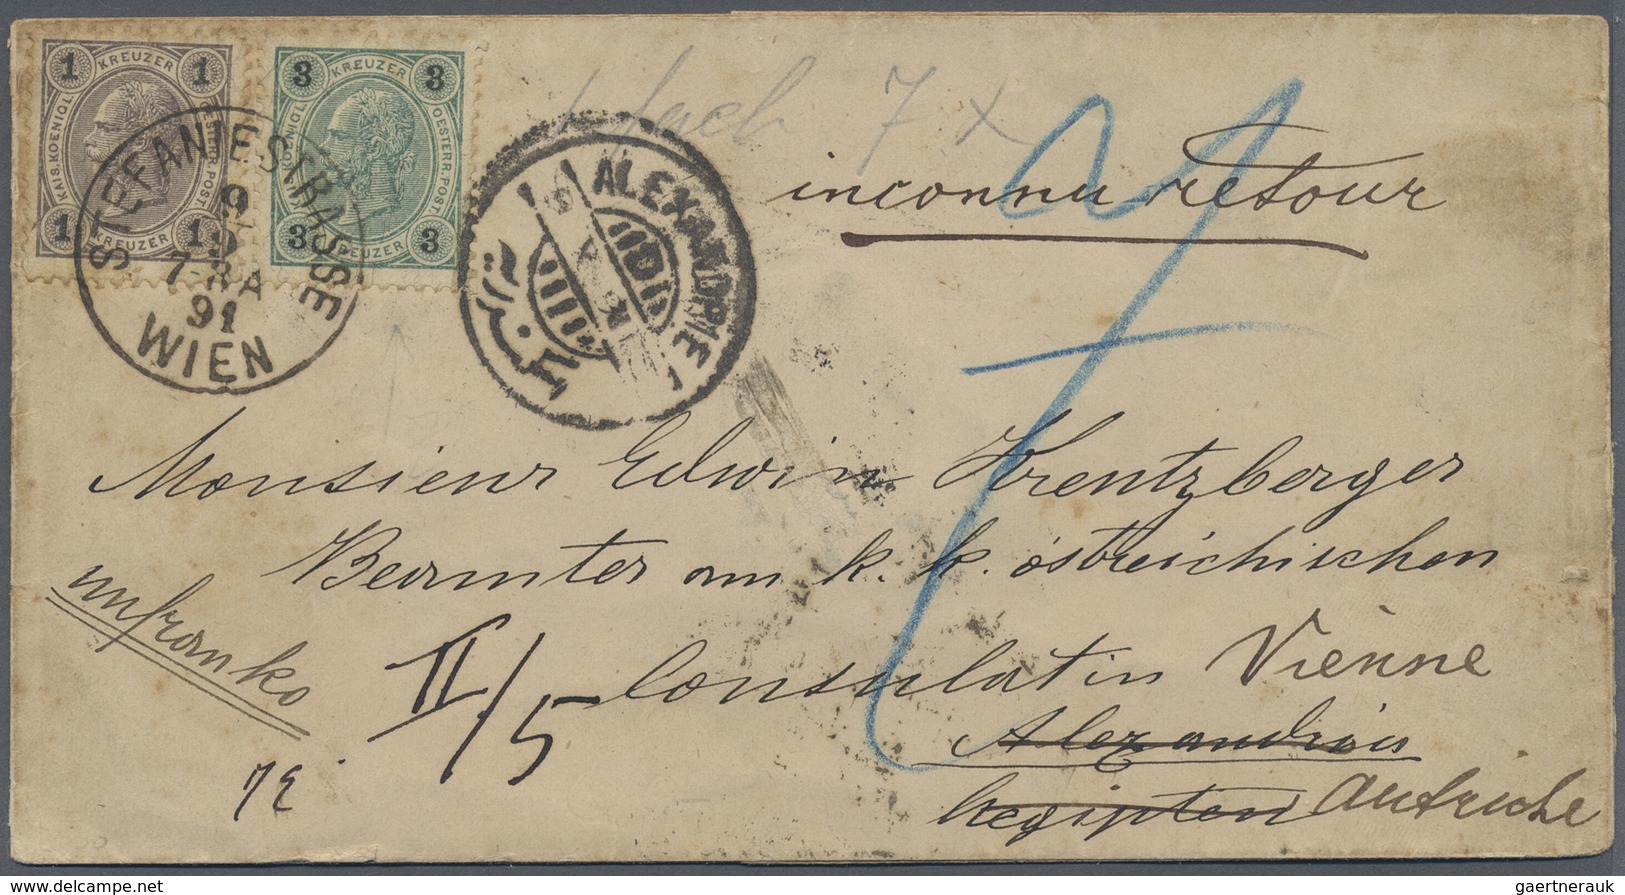 1 KREUZER 1
KAIS. KOENIGL. OESTERR. POST.
1 KREUZER 1
3 KREUZER 3
KAIS. KOENIGL. OESTERR. POST.
3 KREUZER 3
STEFANIESTRASSE
9
9
7-8 A
91
WIEN
fach 7 x
ALEXANDRIE
اسكندرية
inconnu retour
7
Monsieur Edwin Krentzberger
Beamter am k. k. östreichischen
unfranko
II/5
Consulat in Vienne
Alexandrien
Aegipten Autriche
delcampe.net
gaertnerauk